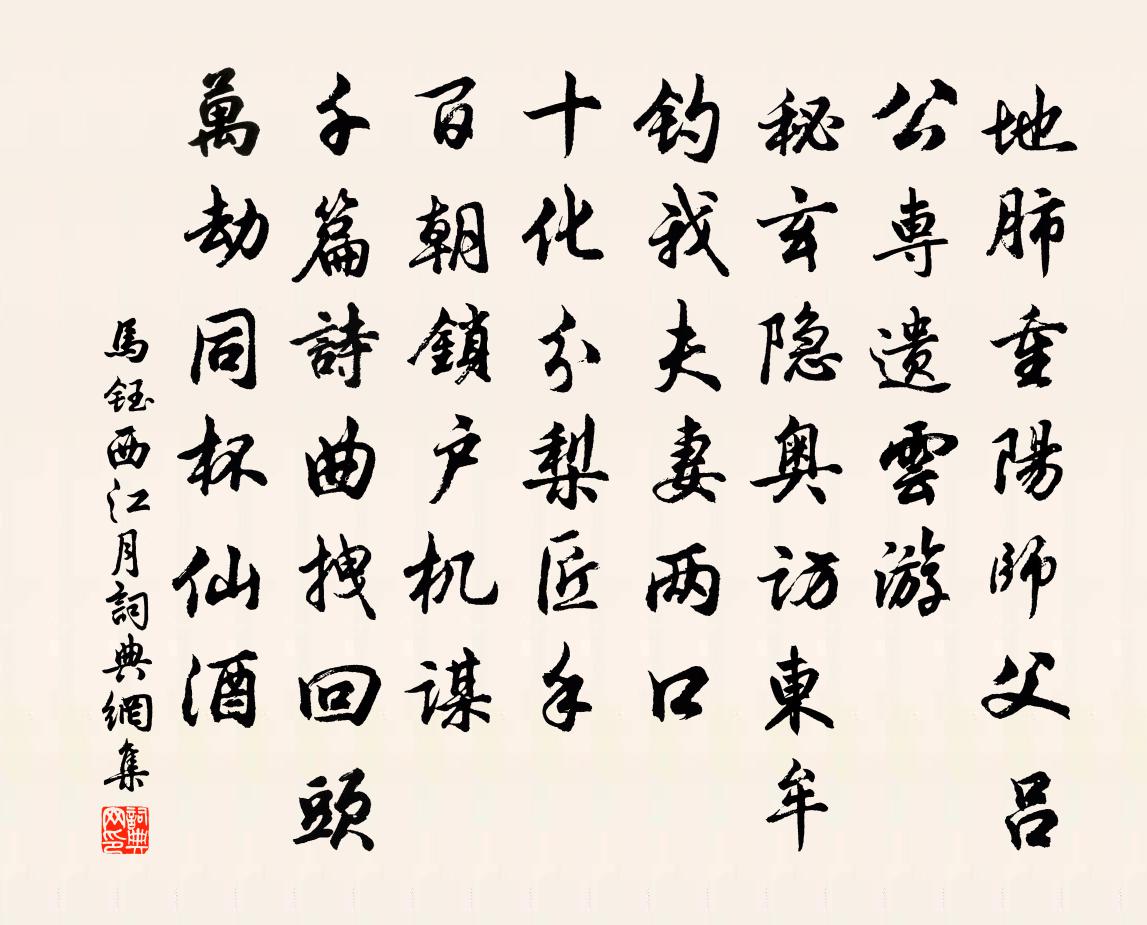 地肺重陽師父呂
公専遺雲游
秘玄隐奥访東牟
钓我夫妻两口
十化分梨匠手
百朝鎖户机谋
千篇詩曲拽回頭
萬劫同杯仙酒
馬鈺西江月詞典網集
詞典网印